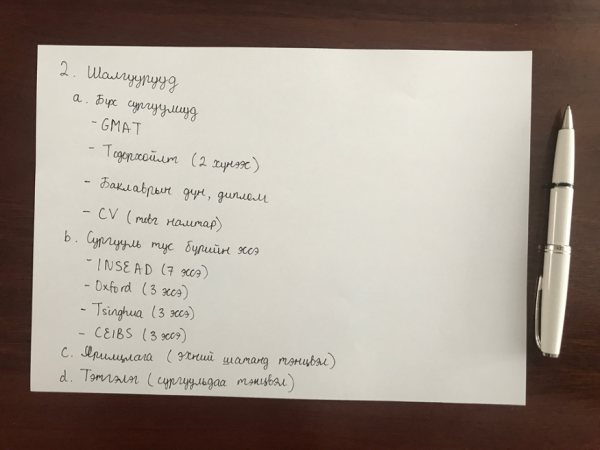 2. Шалгуурууд
a. Бүх сургуулиуд
- GMAT
- Тодорхойлт (2 хүнээс)
- Баклаврын дүн, диплом
- CV (товч намтар)
b. Сургууль тус бүрийн эссэ
- INSEAD (7 эссэ)
- Oxford (3 эссэ)
- Tsinghua (3 эссэ)
- CEIBS (3 эссэ)
c. Ярилцлага (эхний шатанд тэнцвэл)
d. Тэтгэлэг (сургуульдаа тэнцвэл)